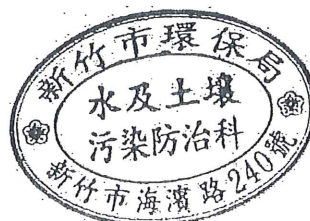 新竹市環保局
水及土壤
污染防治科
新竹市海濱路240號